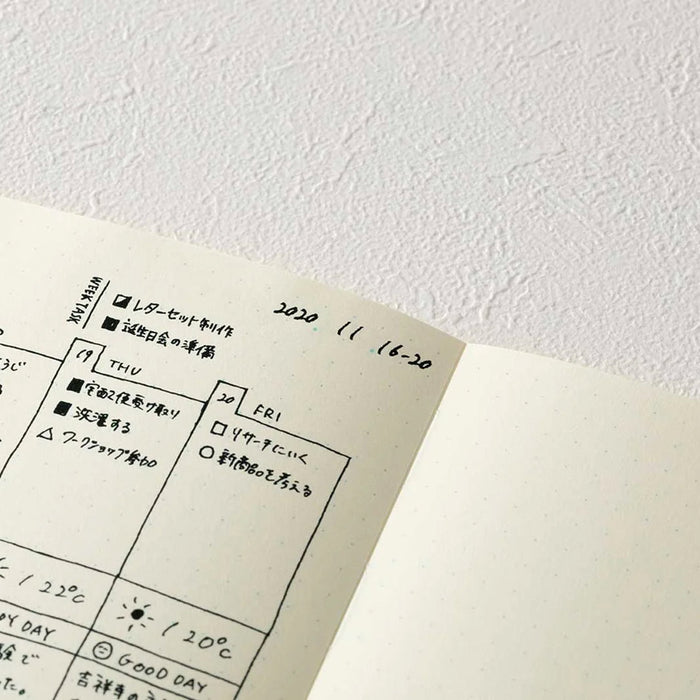 WEEK TASK
レターセット制作
誕生日会の準備
2020. 11. 16-20
19 THU
宅配便受け取り
洗濯する
△ ワークショップ参加
20 FRI
□ リサーチにいく
○ 新商品を考える
/ 22°C
/ 20°C
DAY
GOOD DAY
で
た。
吉祥寺の